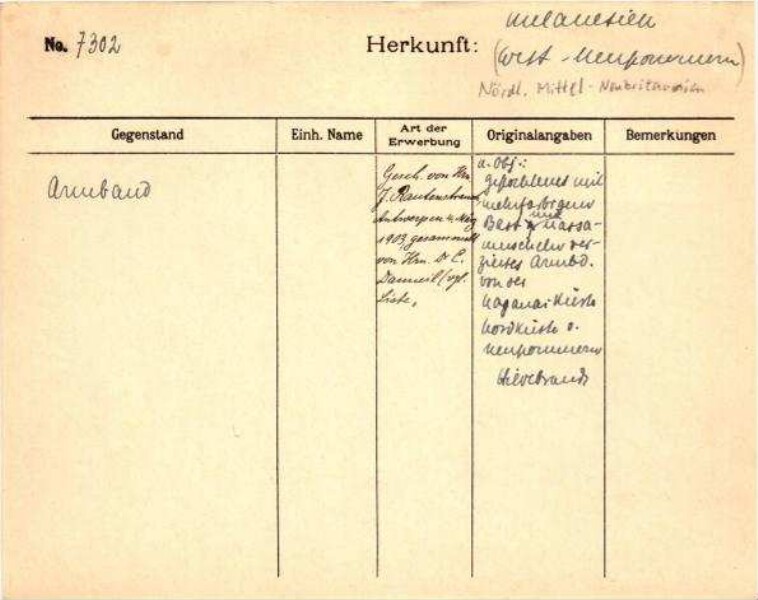 No. 7302
Herkunft: Melanesien
(West-Neupommern)
Nördl. Mittel-Neubritannien
Gegenstand
Einh. Name
Art der Erwerbung
Originalangaben
Bemerkungen
Armband
Gesch. von Hrn.
J. Rautenstrauch
Antwerpen 4. März
1903, gesammelt
von Hrn. Dr C.
Danneil (vgl.
Liste,
a. Obj.:
geflochtenes mit
mehrfarbigem
Bast und Nassa-
muscheln ver-
ziertes Armbd.
von der
Küste
Nordküste v.
Neupommern
Hildebrandt